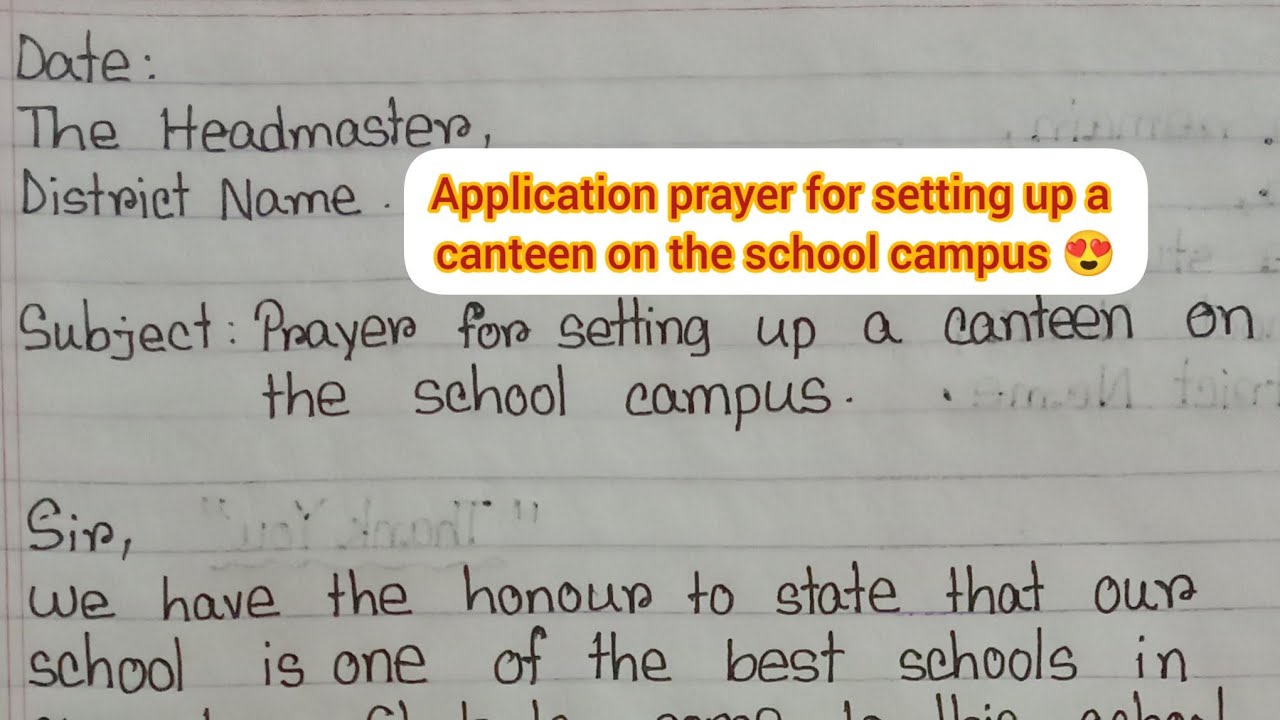 Date:
The Headmaster,
District Name.
Application prayer for setting up a
canteen on the school campus 😍
Subject: Prayer for setting up a canteen on
the school campus.
Sir,
"Thank You"
we have the honour to state that our
school is one of the best schools in
this school